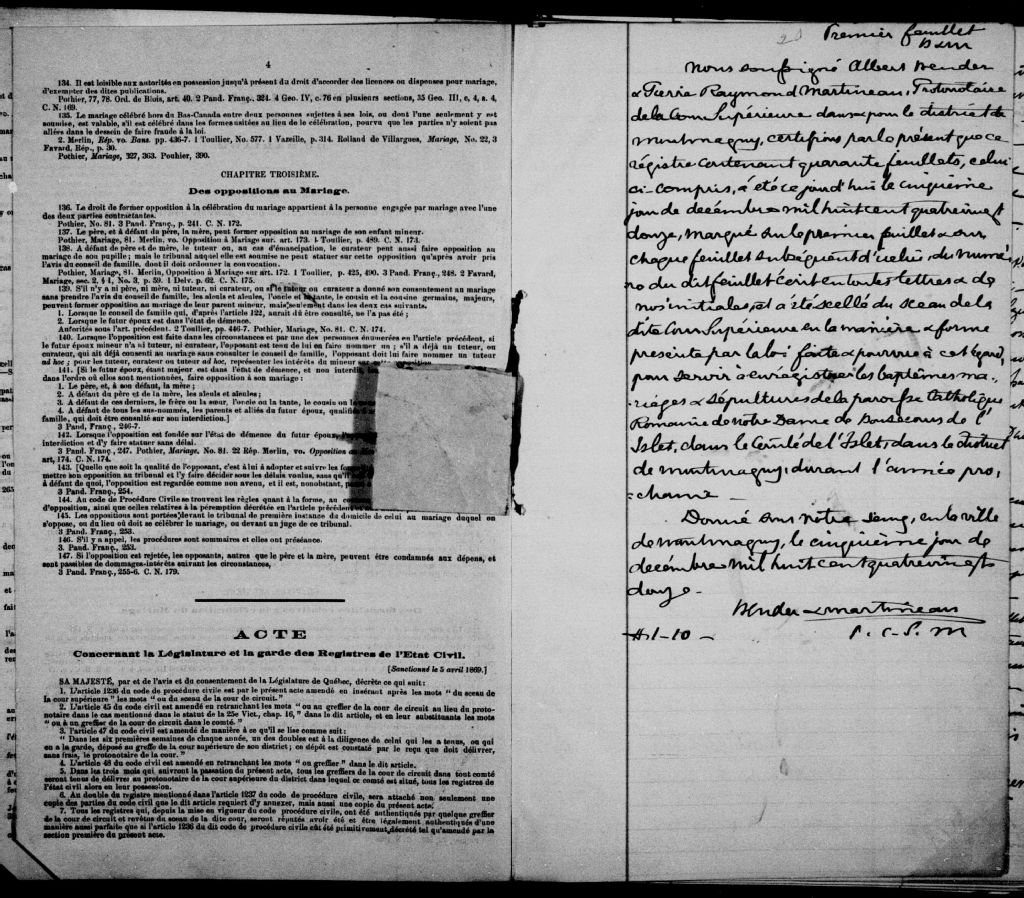 4
134. Il est loisible aux autorités en possession jusqu'à présent du droit d'accorder des licences ou dispenses pour mariage,
d'exempter des dites publications.
Pothier, 77, 78. Ord. de Blois, art. 40. 2 Pand. Franç., 324. 4 Geo. IV, c. 76 en plusieurs sections, 35 Geo. III, c. 4, s. 4,
C. N. 169.
135. Le mariage célébré hors du Bas-Canada entre deux personnes sujettes à ses lois, ou dont l'une seulement y est
soumise, est valable, s'il est célébré dans les formes usitées au lieu de la célébration, pourvu que les parties n'y soient pas
allées dans le dessein de faire fraude à la loi.
2. Merlin, Rép. vo. Bans. pp. 436-7. 1 Toullier, No. 577. 1 Vazeille, p. 314. Rolland de Villargues, Mariage, No. 22, 3
Favard, Rép., p. 30.
Pothier, Mariage, 327, 363. Pouhier, 390.
CHAPITRE TROISIÈME.
Des oppositions au Mariage.
136. Le droit de former opposition à la célébration du mariage appartient à la personne engagée par mariage avec l'une
des deux parties contractantes.
Pothier, No. 81. 3 Pand. Franç., p. 241. C. N. 172.
137. Le père, et à défaut du père, la mère, peut former opposition au mariage de son enfant mineur.
Pothier, Mariage, 81. Merlin, vo. Opposition à Mariage sur. art. 173. 1 Toullier, p. 489. C. N. 173.
138. A défaut de père et de mère, le tuteur ou, au cas d'émancipation, le curateur peut aussi faire opposition au
mariage de son pupille; mais le tribunal auquel elle est soumise ne peut statuer sur cette opposition qu'après avoir pris
l'avis du conseil de famille, dont il doit ordonner la convocation.
Pothier, Mariage, 81. Merlin, Opposition à Mariage sur art. 172. 1 Toullier, p. 425, 490. 3 Pand. Franç., 248. 2 Favard,
Mariage, sec. 2, § 4, No. 3, p. 59. 1 Delv. p. 62. C. N. 175.
139. S'il n'y a ni père, ni mère, ni tuteur, ni curateur, ou si le tuteur ou curateur a donné son consentement au mariage
sans prendre l'avis du conseil de famille, les aïeuls et aïeules, l'oncle et la tante, le cousin et la cousine germains, majeurs,
peuvent former opposition au mariage de leur parent mineur, mais seulement dans les deux cas suivants.
1. Lorsque le conseil de famille qui, d'après l'article 122, aurait dû être consulté, ne l'a pas été;
2. Lorsque le futur époux est dans l'état de démence.
Autorités sous l'art. précédent. 2 Toullier, pp. 446-7. Pothier, Mariage, No. 81. C. N. 174.
140. Lorsque l'opposition est faite dans les circonstances et par une des personnes énumérées en l'article précédent, si
le futur époux mineur n'a ni tuteur, ni curateur, l'opposant est tenu de lui en faire nommer un; s'il a déjà un tuteur, ou
curateur, qui ait déjà consenti au mariage sans consulter le conseil de famille, l'opposant doit lui faire nommer un tuteur
ad hoc; pour les tuteur, curateur ou tuteur ad hoc, représenter les intérêts du mineur sur
141. [Si le futur époux, étant majeur est dans l'état de démence, et non interdit,
dans l'ordre où elles sont mentionnées, faire opposition à son mariage:
1. Le père, et, à son défaut, la mère;
2. A défaut du père et de la mère, les aïeuls et aïeules;
3. A défaut de ces derniers, le frère ou la sœur, l'oncle ou la tante, le cousin ou la
4. A défaut de tous les sus-nommés, les parents et alliés du futur époux, qualifiés
famille, qui doit être consulté sur son interdiction.]
3 Pand. Franç., 246-7.
142. Lorsque l'opposition est fondée sur l'état de démence du futur époux,
interdiction et d'y faire statuer sans délai.
3 Pand. Franç., 247. Pothier, Mariage, No. 81. 22 Rép. Merlin, vo. Opposition au
art, 174. C. N. 174.
143. [Quelle que soit la qualité de l'opposant, c'est à lui à adopter et suivre les
mettre son opposition au tribunal et l'y faire décider sous les délais voulus, sans qu'il
à défaut de quoi, l'opposition est regardée comme non avenu, et il est, nonobstant,
3 Pand. Franç., 254.
144. Au code de Procédure Civile se trouvent les règles quant à la forme, au
d'opposition, ainsi que celles relatives à la péremption décrétée en l'article précédent
145. Les oppositions sont portées devant le tribunal de première instance du domicile de celui au mariage duquel on
s'oppose, ou du lieu où doit se célébrer le mariage, ou devant un juge de ce tribunal.
3 Pand. Franç., 253.
146. S'il y a appel, les procédures sont sommaires et elles ont préséance.
3. Pand. Franç., 253.
147. Si l'opposition est rejetée, les opposants, autres que le père et la mère, peuvent être condamnés aux dépens, et
sont passibles de dommages-intérêts suivant les circonstances,
3 Pand. Franç., 255-6. C. N. 179.
ACTE
Concernant la Législature et la garde des Registres de l'Etat Civil.
[Sanctionné le 5 avril 1869.]
SA MAJESTÉ, par et de l'avis et du consentement de la Législature de Québec, décrète ce qui suit:
1. L'article 1236 du code de procédure civile est par le présent acte amendé en insérant après les mots "du sceau de
la cour supérieure" les mots "ou du sceau de la cour de circuit."
2. L'article 45 du code civil est amendé en retranchant les mots "ou au greffier de la cour de circuit au lieu du proto-
notaire dans le cas mentionné dans le statut de la 25e Vict., chap. 16," dans le dit article, et en leur substituants les mots
"ou à un greffier de la cour de circuit dans le comté."
3. l'article 47 du code civil est amendé de manière à ce qu'il se lise comme suit:
"Dans les six premières semaines de chaque année, un des doubles est à la diligence de celui qui les a tenus, ou qui
en a la garde, déposé au greffe de la cour supérieure de son district; ce dépôt est constaté par le reçu que doit délivrer,
sans frais, le protonotaire de la cour."
4. L'article 48 du code civil est amendé en retranchant les mots "ou greffier" dans le dit article.
5. Dans les trois mois qui suivront la passation du présent acte, tous les greffiers de la cour de circuit dans tout comté
seront tenus de délivrer au protonotaire de la cour supérieure du district dans lequel ce comté est situé, tous les registres de
l'état civil alors en leur possession.
6. Au double du registre mentionné dans l'article 1237 du code de procédure civile, sera attaché non seulement une
copie des parties du code civil que le dit article requiert d'y annexer, mais aussi une copie du présent acte.
7. Tous les registres qui, depuis la mise en vigueur du code procédure civile, ont été authentiqués par quelque greffier
de la cour de circuit et revêtus du sceau de la dite cour, seront réputés avoir été et être légalement authentiqués d'une
manière aussi parfaite que si l'article 1236 du dit code de procédure civile eût été primitivement décrété tel qu'amendé par la
section première du présent acte.
Premier feuillet
B & M
Nous soussigné Albert Bender
& Pierre Raymond Martineau, Protonotaire
de la Cour Supérieure dans & pour le district de
Montmagny, certifions par le présent que ce
régistre contenant quarante feuillets, celui
ci-compris, a été ce jour d'hui le cinquième
jour de decémbre mil huit cent quatre vingt
douze, marqué sur le premier feuillet & sur
chaque feuillet subséquent d'icelui, du numé-
ro du dit feuillet écrit en toutes lettres & de
nos initiales, et a été scellé du sceau de la
dite Cour Supérieure en la manière & forme
prescrite par la loi faite & pourvue à cet égard,
pour servir à enrégistrer les baptêmes ma-
riages & sépultures de la paroisse Catholique
Romaine de Notre Dame de Bonsecours de l'
Islet, dans le Comté de l'Islet, dans le district
de Montmagny, durant l'année pro-
chaine —
Donné sous notre seing, en la ville
de Montmagny, le cinquième jour de
decémbre mil huit cent quatre vingt
douze.
Bender & Martineau
P. C. S. M
$1-10 -